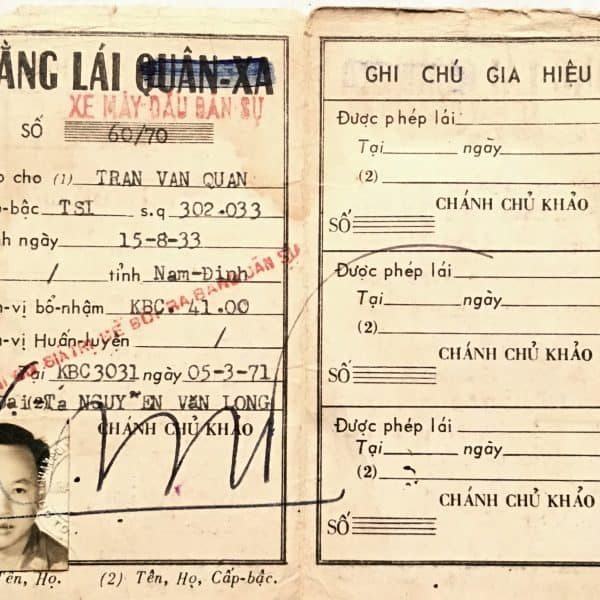 ẰNG LÁI QUÂN-XA
XE MÁY DẦU BAN SỰ
SỐ 60/70
cho (1) TRAN VAN QUAN
bậc TSI s.q 302.033
h ngày 15-8-33
/ tỉnh Nam-Định
vị bổ-nhậm KBC. 41.00
vị Huấn-luyện /
Tại KBC3031 ngày 05-3-71
ại Tá NGUYỄN VĂN LONG
CHÁNH CHỦ KHẢO
Tên, Họ. (2) Tên, Họ, Cấp-bậc.
GHI CHÚ GIA HIỆU
Được phép lái
Tại ngày
(2)
CHÁNH CHỦ KHẢO
SỐ
Được phép lái
Tại ngày
(2)
CHÁNH CHỦ KHẢO
SỐ
Được phép lái
Tại ngày
(2)
CHÁNH CHỦ KHẢO
SỐ